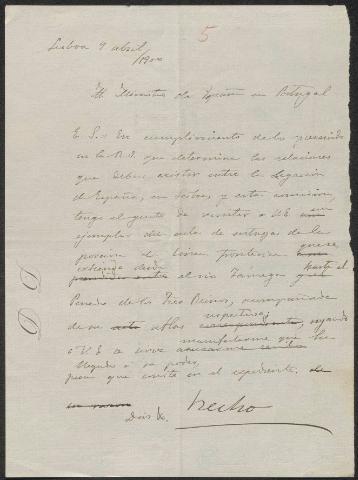 5
Lisboa 9 abril
/1900
Al Ministro de España en Portugal
E. S. = En cumplimiento de lo prevenido
en la R. O. que determina las relaciones
que deben existir entre la Legación
de España en Lisboa y esta comisión,
tengo el gusto de remitir a V.E. un
ejemplar del acta de entrega de la
porción de línea fronteriza que se
extiende desde
el río Támega hasta el
Penedo de los Tres Reinos, acompañada
respectivo
de su atlas rogando
manifestarme que ha
a V.E. se sirva
llegado a su poder
para que conste en el expediente.
Dios &.
hecho
D D